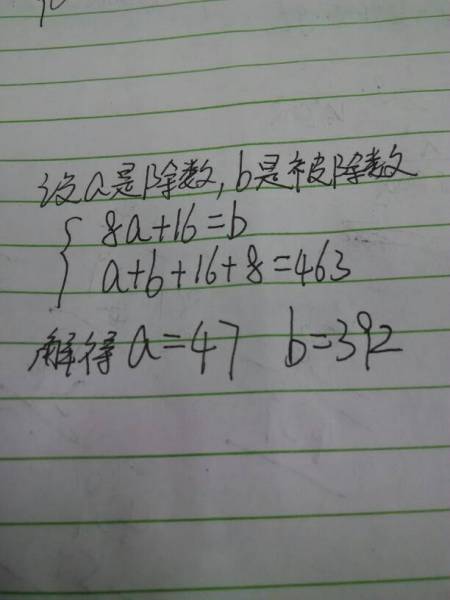 设a是除数,b是被除数
8a+16=b
a+b+16+8=463
解得 a=47 b=392